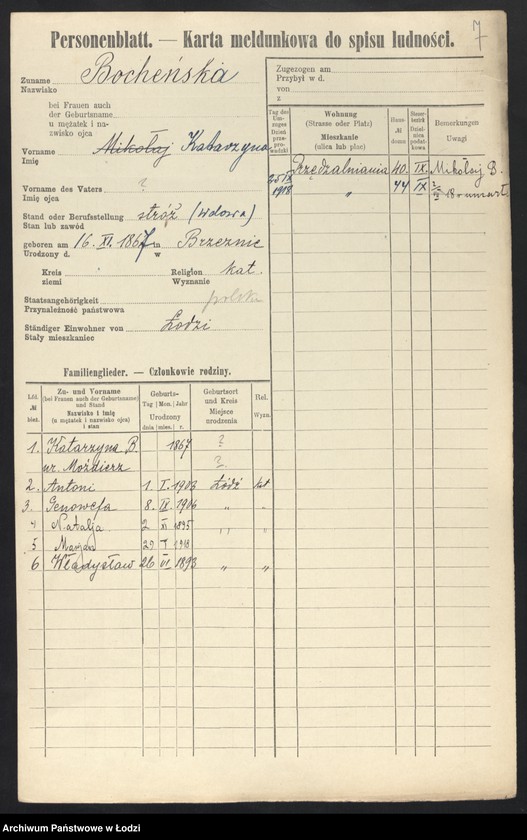 7
Personenblatt. — Karta meldunkowa do spisu ludności.
Zuname Bocheńska
Nazwisko
bei Frauen auch
der Geburtsname
u mężatek i na-
zwisko ojca
Vorname Mikołaj Katarzyna
Imię
Vorname des Vaters ?
Imię ojca
Stand oder Berufsstellung stróż (wdowa)
Stan lub zawód
geboren am 16. XI. 1867 in Brzeznic
Urodzony d. w
Kreis Religion kat.
ziemi Wyznanie
Staatsangehörigkeit polska
Przynależność państwowa
Ständiger Einwohner von Łodzi
Stały mieszkaniec
Zugezogen am
Przybył w d.
von
z
Tag des Ein-
zuges
Dzień
prze-
prowadzki
Wohnung
(Strasse oder Platz)
Mieszkanie
(ulica lub plac)
Haus-
№
domu
Steuer-
bezirk
Dziel-
nica
podat-
kowa
Bemerkungen
Uwagi
Przędzalniana 40. IX. Mikołaj B.
25 IX 1918 " 44 IX
Familienglieder. — Członkowie rodziny.
Lfd.
№
bież.
Zu- und Vorname
(bei Frauen auch der Geburtsname)
und Stand
Nazwisko i imię
(u mężatek i nazwisko ojca)
i stan
Geburts-
Tag Mon. Jahr
Urodzony
dnia mies. r.
Geburtsort
und Kreis
Miejsce
urodzenia
Rel.
Wyzn.
1. Katarzyna B. 1867 ?
ur. Moździerz ?
2. Antoni 1. I. 1903 Łódź kat
3. Genowefa 8. IX. 1906 " "
4 Natalja 2 XI 1895 "
5 Marjan
6 Władysław 26 VI 1893 " "
Archiwum Państwowe w Łodzi